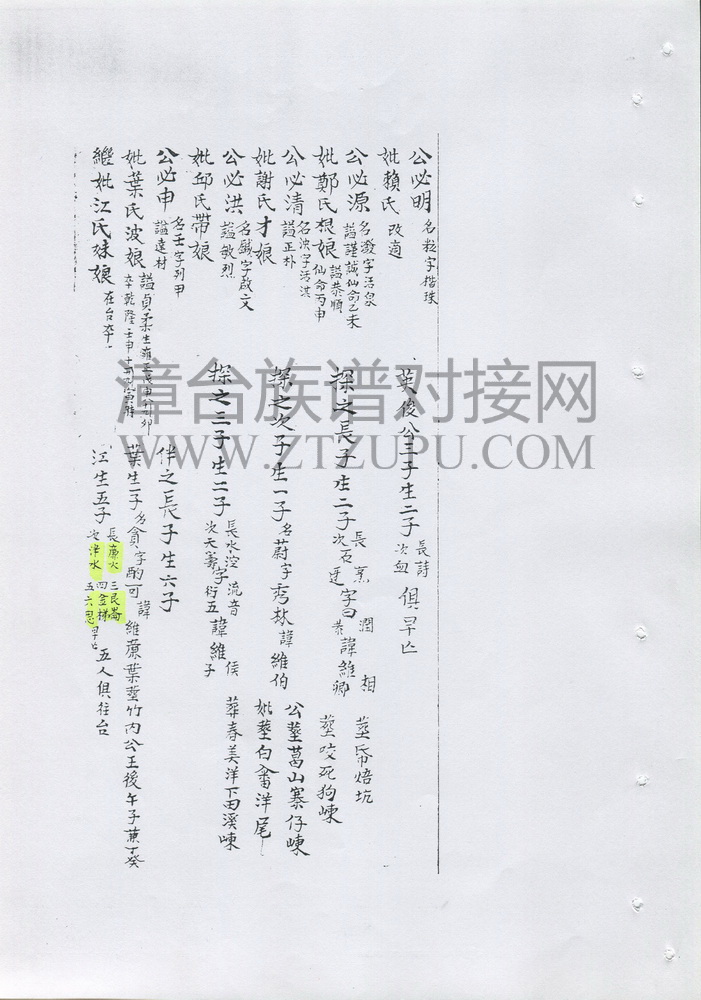 公必明 名粒字楷珠 英俊公三子生二子 長詩 次血 俱早亡
妣賴氏 改適
公必源 名澂字活泉 諡謹誠仙命乙未 探之長子生二子 長窯 潤 相 塟 焙坑
妣鄭氏根娘 諡恭順 仙命丙申 次石 字曰恭 諱維卿 塟咬死狗崠
公必清 名浊字活淇 諡正朴 探之次子生一子 名蔚字秀林 諱維伯 公塟葛山寨仔崠
妣謝氏才娘 妣塟白畬洋尾
公必洪 名鐵字啟文 諡敏烈 探之三子生二子 長水 流音 次天壽字衍五 諱維 侯 子 葬春美洋下田溪崠
妣邱氏帶娘
公必申 名壬字列甲 諡達材 伴之長子生六子
妣葉氏波娘 諡貞柔生雍正 申 卯 卒乾隆壬申十 月 寅時 葉生一子 名貪字酌可 諱維薕葉塟竹内公王後午子兼丁癸
繼妣江氏妹娘 在台卒 江生五子 長廉火 次津水 三艮崙 四金梯 五六恩早亡 五人俱往台
漳台族谱对接网
WWW.ZTZUPU.COM